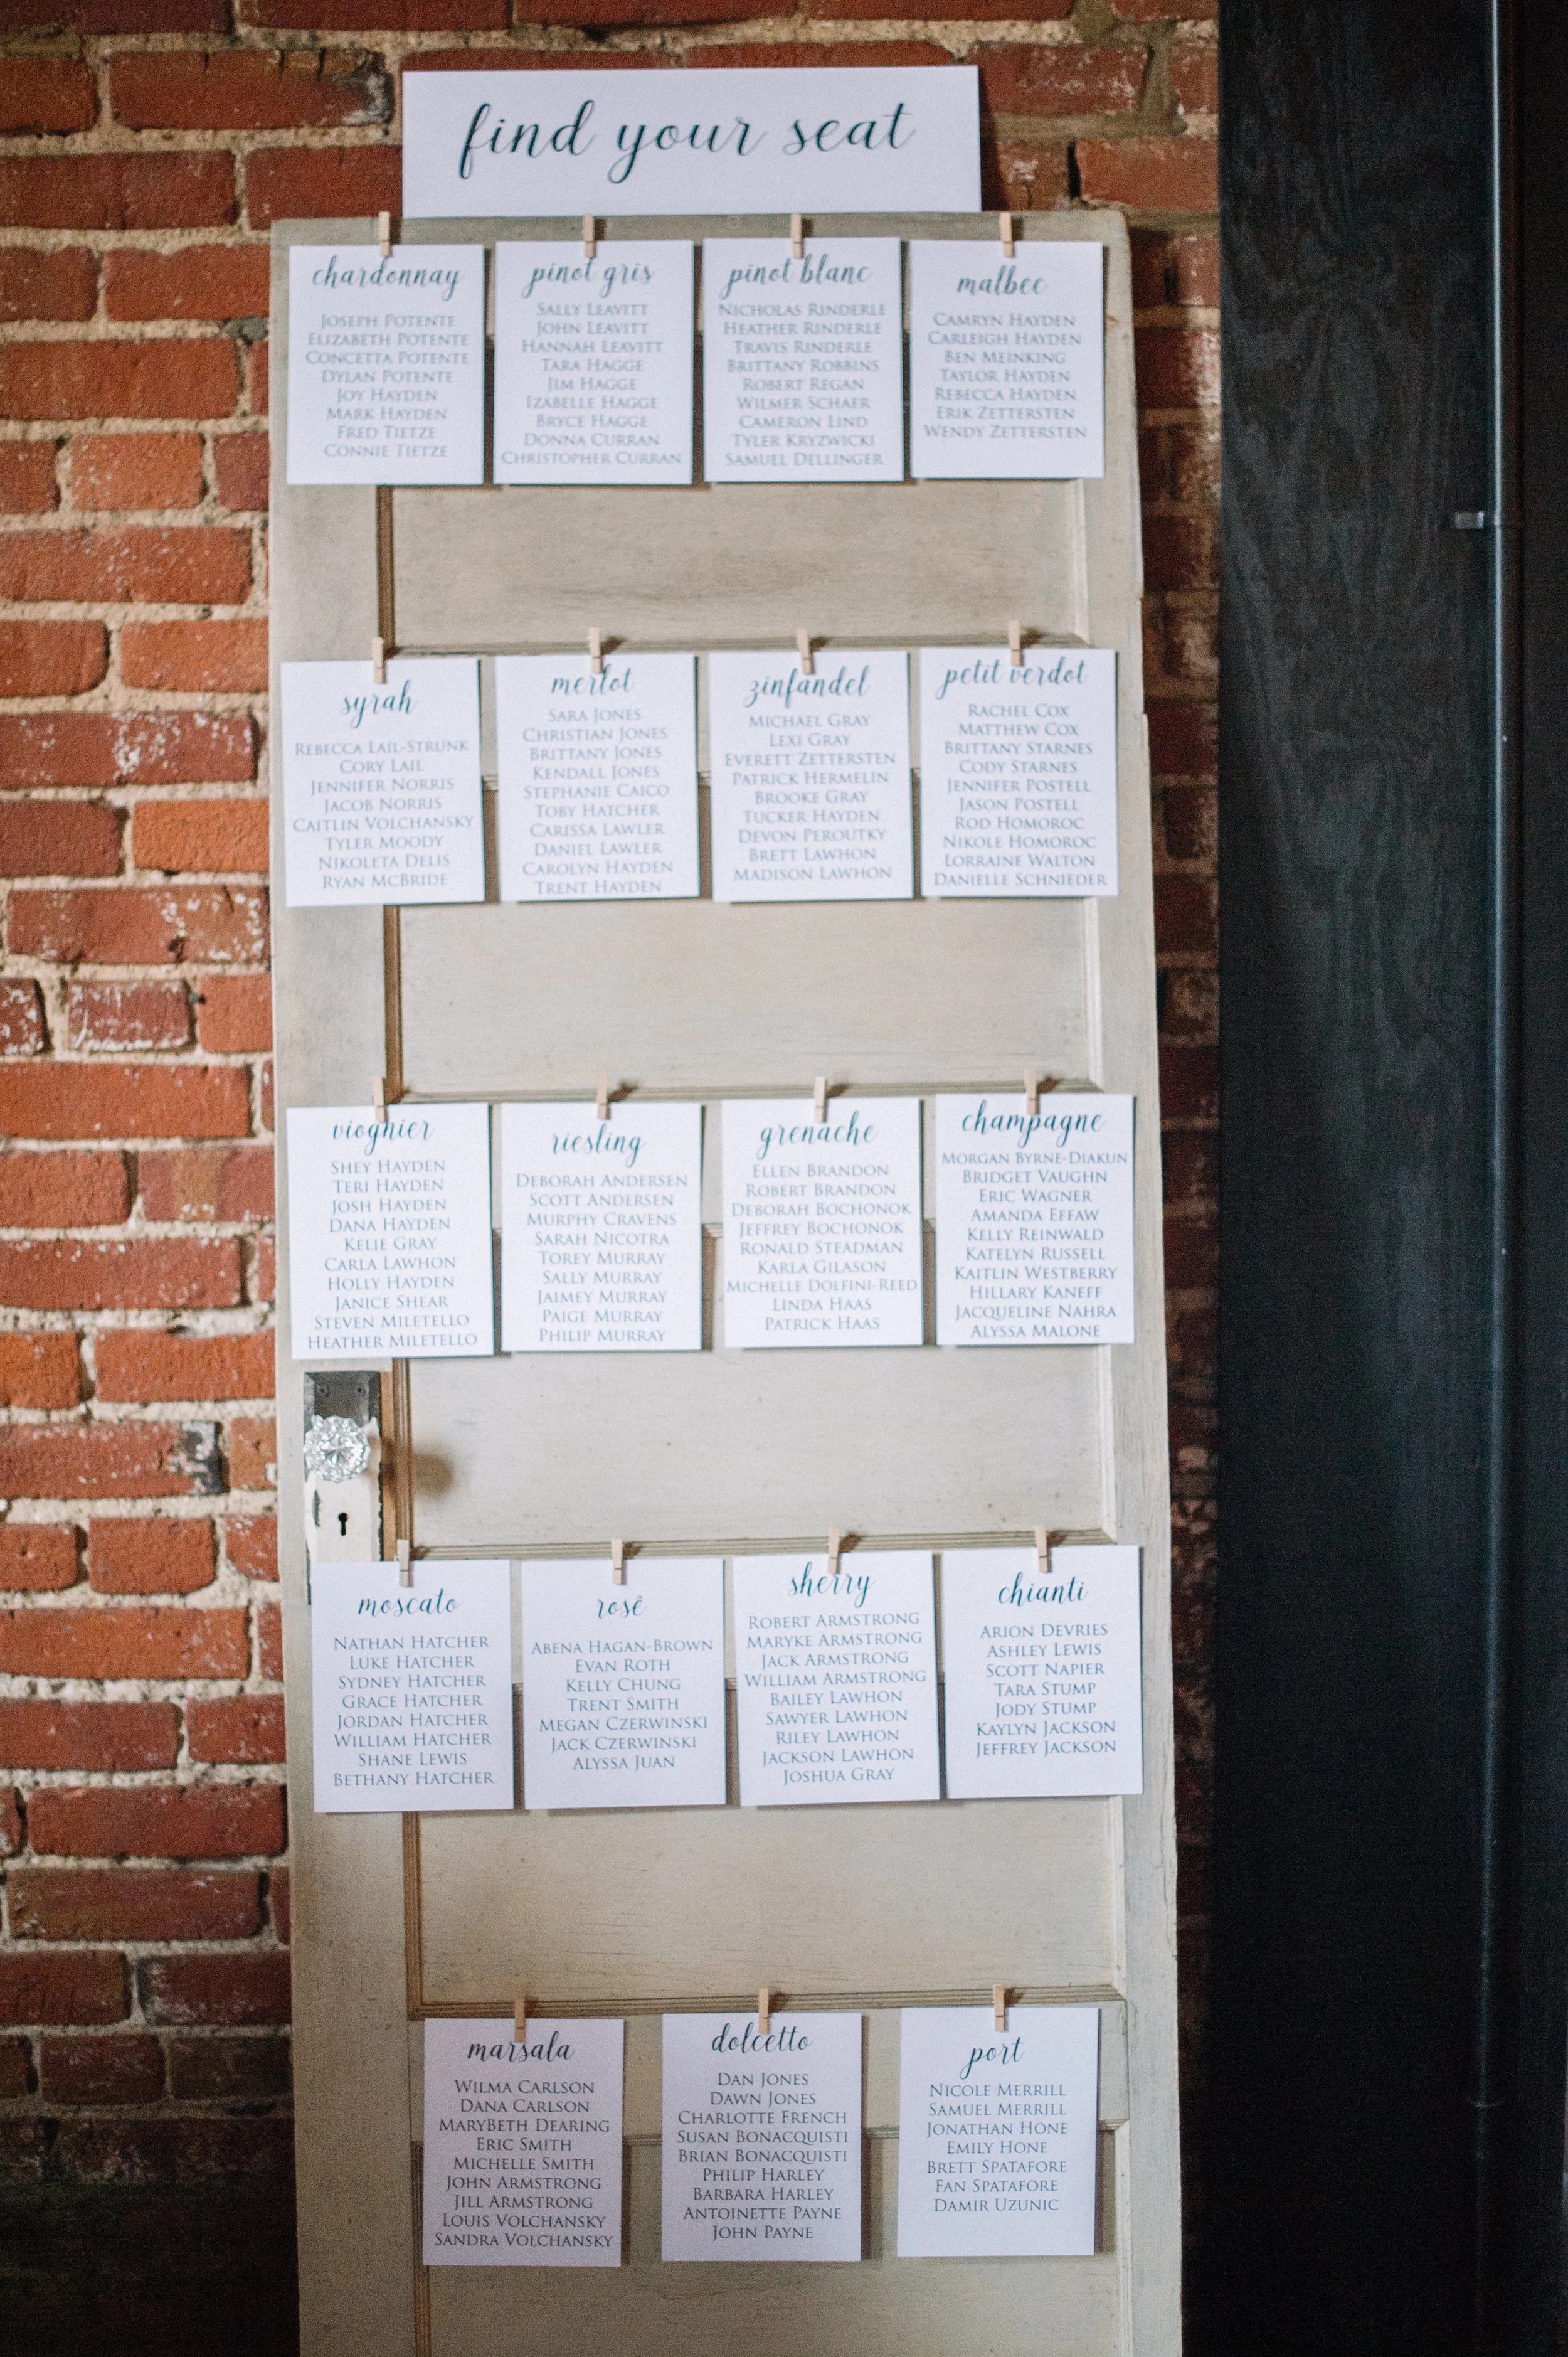 find your seat
chardonnay
Joseph Potente
Elizabeth Potente
Concetta Potente
Dylan Potente
Joy Hayden
Mark Hayden
Fred Tietze
Connie Tietze
pinot gris
Sally Leavitt
John Leavitt
Hannah Leavitt
Tara Hagge
Jim Hagge
Izabelle Hagge
Bryce Hagge
Donna Curran
Christopher Curran
pinot blanc
Nicholas Rinderle
Heather Rinderle
Travis Rinderle
Brittany Robbins
Robert Regan
Wilmer Schaer
Cameron Lind
Tyler Kryzwicki
Samuel Dellinger
malbec
Camryn Hayden
Carleigh Hayden
Ben Meinking
Taylor Hayden
Rebecca Hayden
Erik Zettersten
Wendy Zettersten
syrah
Rebecca Lail-Strunk
Cory Lail
Jennifer Norris
Jacob Norris
Caitlin Volchansky
Tyler Moody
Nikoleta Delis
Ryan McBride
merlot
Sara Jones
Christian Jones
Brittany Jones
Kendall Jones
Stephanie Caico
Toby Hatcher
Carissa Lawler
Daniel Lawler
Carolyn Hayden
Trent Hayden
zinfandel
Michael Gray
Lexi Gray
Everett Zettersten
Patrick Hermelin
Brooke Gray
Tucker Hayden
Devon Peroutky
Brett Lawhon
Madison Lawhon
petit verdot
Rachel Cox
Matthew Cox
Brittany Starnes
Cody Starnes
Jennifer Postell
Jason Postell
Rod Homoroc
Nikole Homoroc
Lorraine Walton
Danielle Schnieder
viognier
Shey Hayden
Teri Hayden
Josh Hayden
Dana Hayden
Kelie Gray
Carla Lawhon
Holly Hayden
Janice Shear
Steven Miletello
Heather Miletello
riesling
Deborah Andersen
Scott Andersen
Murphy Cravens
Sarah Nicotra
Torey Murray
Sally Murray
Jaimey Murray
Paige Murray
Philip Murray
grenache
Ellen Brandon
Robert Brandon
Deborah Bochonok
Jeffrey Bochonok
Ronald Steadman
Karla Gilason
Michelle Dolfini-Reed
Linda Haas
Patrick Haas
champagne
Morgan Byrne-Diakun
Bridget Vaughn
Eric Wagner
Amanda Effaw
Kelly Reinwald
Katelyn Russell
Kaitlin Westberry
Hillary Kaneff
Jacqueline Nahra
Alyssa Malone
moscato
Nathan Hatcher
Luke Hatcher
Sydney Hatcher
Grace Hatcher
Jordan Hatcher
William Hatcher
Shane Lewis
Bethany Hatcher
rosé
Abena Hagan-Brown
Evan Roth
Kelly Chung
Trent Smith
Megan Czerwinski
Jack Czerwinski
Alyssa Juan
sherry
Robert Armstrong
Maryke Armstrong
Jack Armstrong
William Armstrong
Bailey Lawhon
Sawyer Lawhon
Riley Lawhon
Jackson Lawhon
Joshua Gray
chianti
Arion Devries
Ashley Lewis
Scott Napier
Tara Stump
Jody Stump
Kaylyn Jackson
Jeffrey Jackson
marsala
Wilma Carlson
Dana Carlson
MaryBeth Dearing
Eric Smith
Michelle Smith
John Armstrong
Jill Armstrong
Louis Volchansky
Sandra Volchansky
dolcetto
Dan Jones
Dawn Jones
Charlotte French
Susan Bonacquisti
Brian Bonacquisti
Philip Harley
Barbara Harley
Antoinette Payne
John Payne
port
Nicole Merrill
Samuel Merrill
Jonathan Hone
Emily Hone
Brett Spatafore
Fan Spatafore
Damir Uzunic